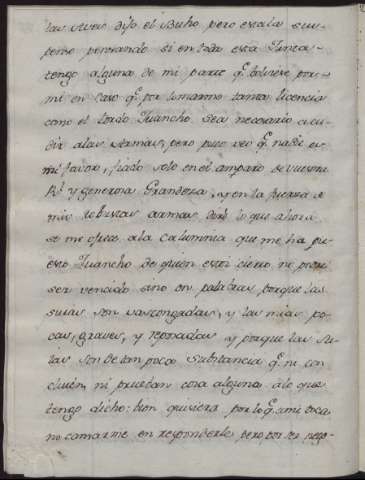 las Aves dijo el Buho pero estaba sus-
penso pensando si en toda esta Junta
tengo alguno de mi parte q.e bolviese por
mi en caso q.e por tomarme tanta licencia
como el tordo Juancho sea necesario acu-
dir a las Armas, pero pues veo q.e nadie es
mi favor, fiado solo en el amparo de vuestra
R.l y generosa Grandeza, y en la fuerza de
mis robustas armas, doré lo que ahora
se me ofrece a la Calumnia que me ha pu-
esto Juancho de quien estoi cierto, ni puede
ser vencido sino en palabras porque las
suias son vascongadas, y las mias po-
cas, graves, y reposadas, y porque las su-
ias son de tan poca substancia q.e ni con-
cluién, ni pruevan cosa alguna a lo que
tengo dicho: bien quisiera por lo q.e a mi toca
no cansarme en responderle, pero por ser nego-